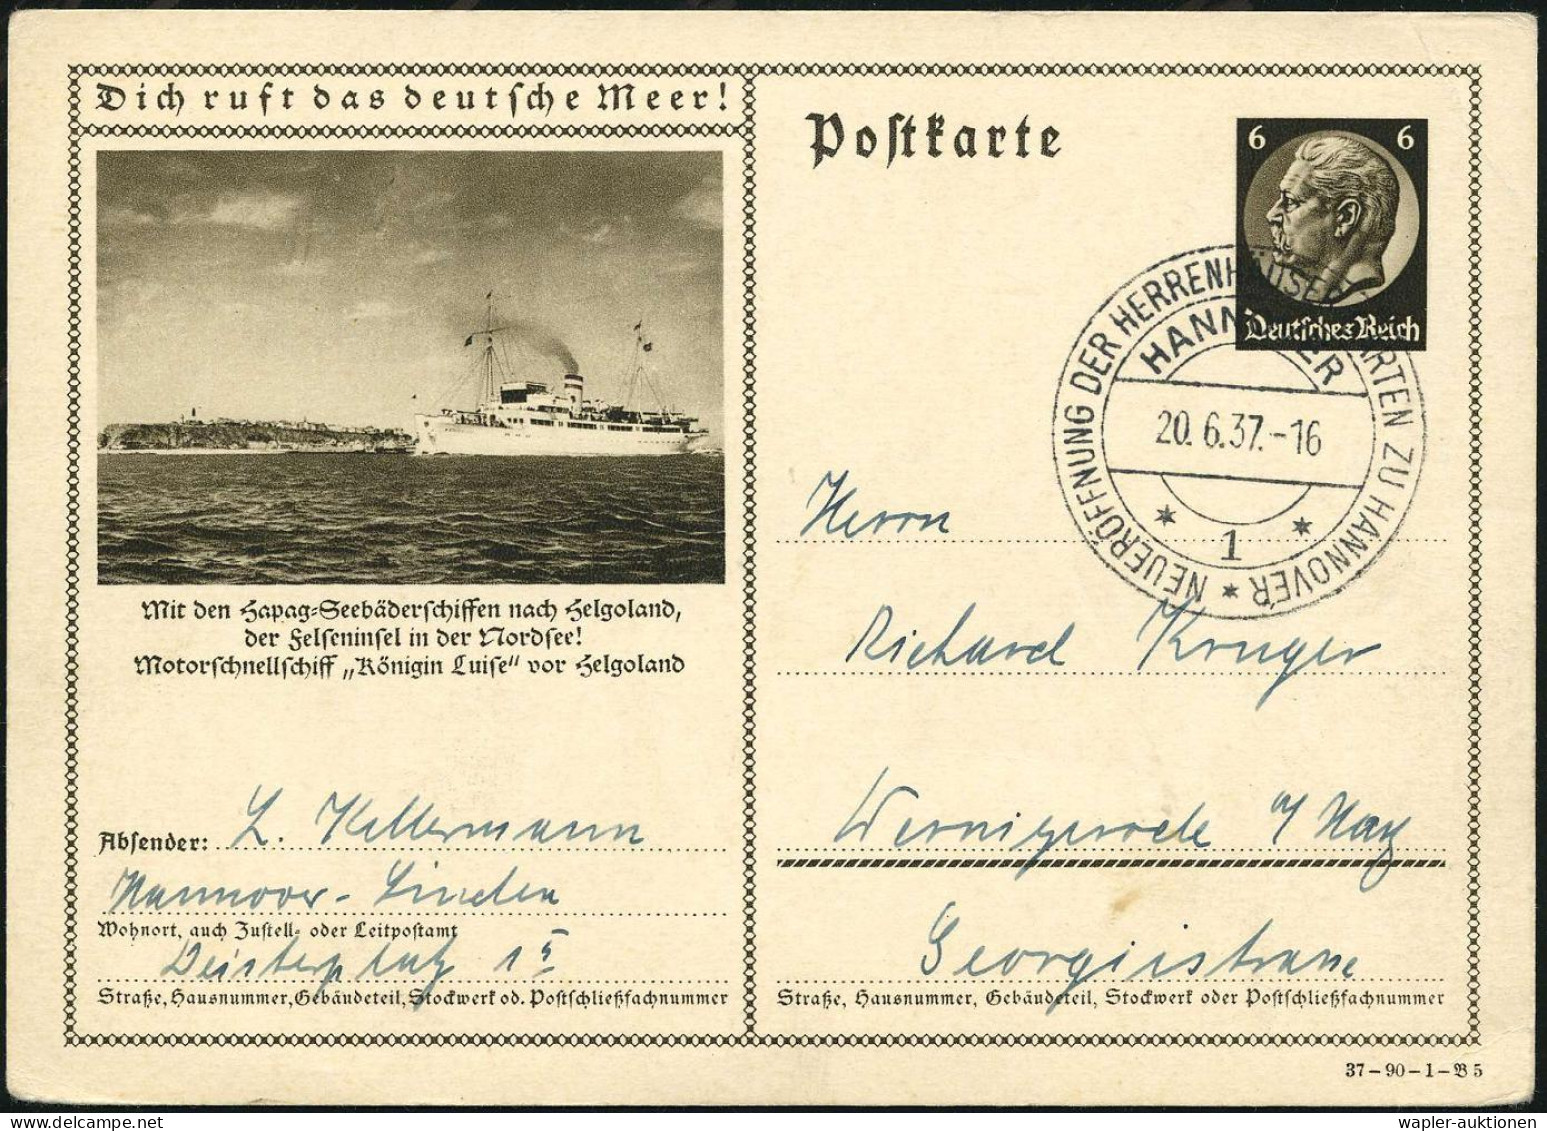 Dich ruft das deutsche Meer!
Mit den Hapag-Seebäderschiffen nach Helgoland,
der Felseninsel in der Nordsee!
Motorschnellschiff „Königin Luise" vor Helgoland
Absender: L. Kellermann
Hannover-Linden
Wohnort, auch Zustell- oder Leitpostamt
Deisterplatz 15
Straße, Hausnummer, Gebäudeteil, Stockwerk od. Postschließfachnummer
Postkarte
6 6
Deutsches Reich
NEUERÖFFNUNG DER HERRENHÄUSER GARTEN ZU HANNOVER
HANNOVER
20.6.37.-16
1
Herrn
Richard Kruger
Wernigerode a/Harz
Georgiistrasse
Straße, Hausnummer, Gebäudeteil, Stockwerk oder Postschließfachnummer
37-90-1-B5
wapler-auktionen